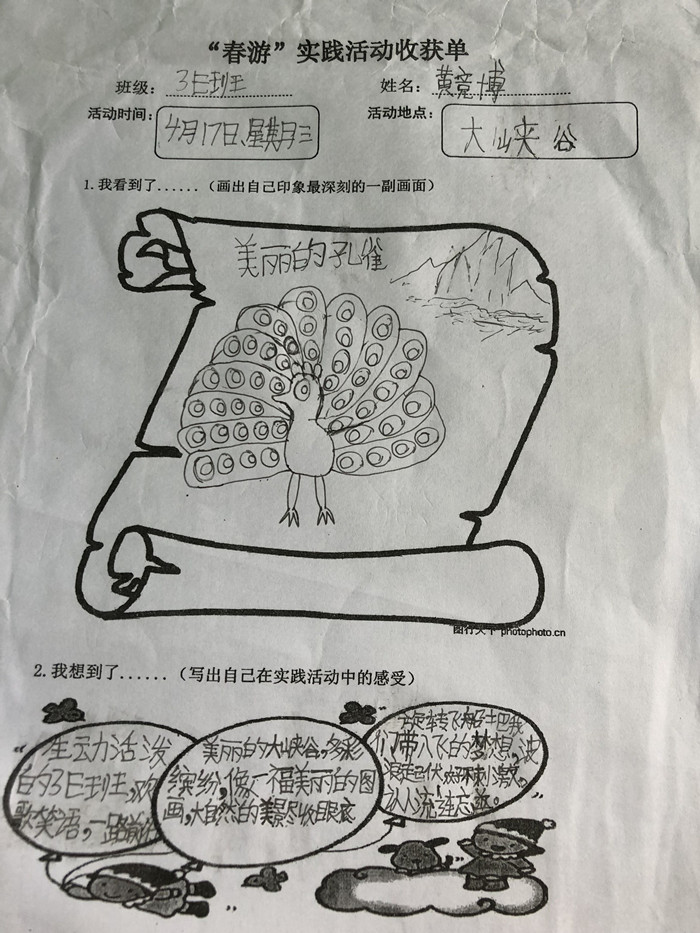 “春游”实践活动收获单
班级：3E班 姓名：黄竞博
活动时间：4月17日、星期三 活动地点：大峡谷
1.我看到了......（画出自己印象最深刻的一副画面）
美丽的孔雀
图行天下 photophoto.cn
2.我想到了......（写出自己在实践活动中的感受）
“生动活泼
的3E班,欢
歌笑语,一路前行
美丽的大山峡谷,多彩
缤纷,像一福美丽的图
画,大自然的美景尽收眼底
旋转飞船把我
们带入飞的梦想,波
浪起伏,刺激,
流连忘返。”